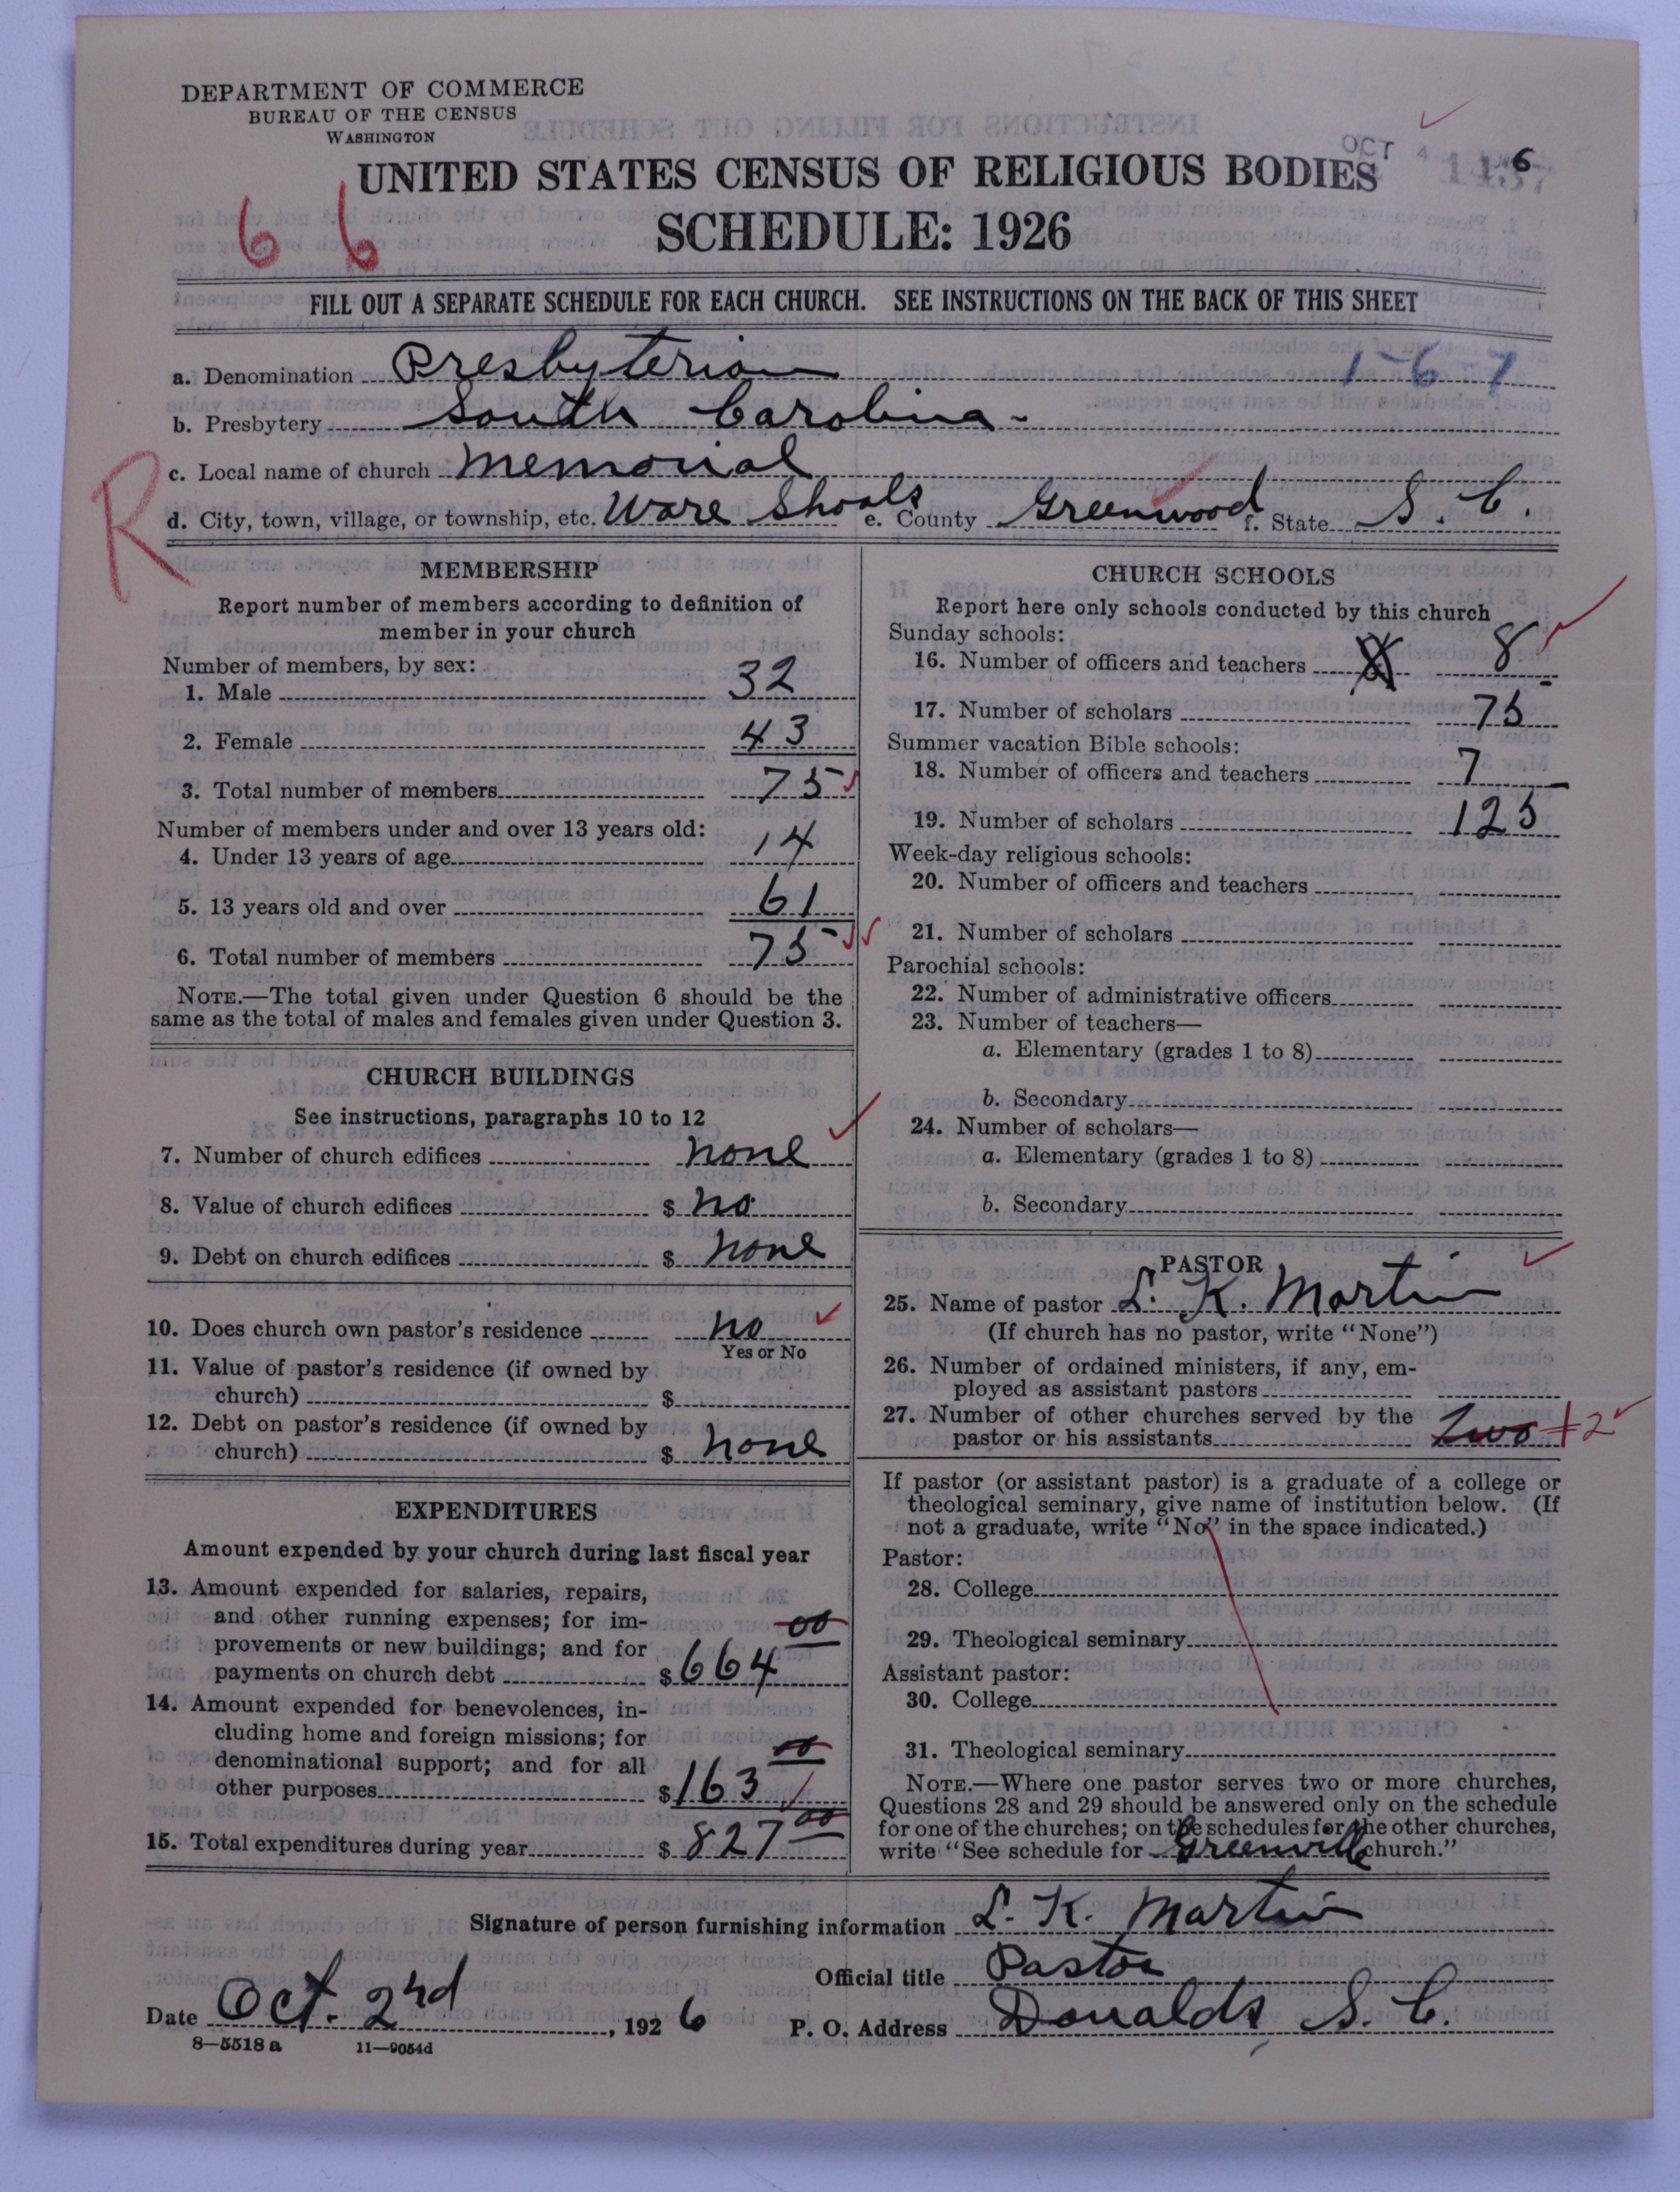 DEPARTMENT OF COMMERCE
BUREAU OF THE CENSUS
WASHINGTON
OCT 4
UNITED STATES CENSUS OF RELIGIOUS BODIES
SCHEDULE: 1926
6 6
FILL OUT A SEPARATE SCHEDULE FOR EACH CHURCH. SEE INSTRUCTIONS ON THE BACK OF THIS SHEET
a. Denomination Presbyterian 1-67
b. Presbytery South Carolina-
c. Local name of church Memorial
R
d. City, town, village, or township, etc. Ware Shoals e. County Greenwood f. State S. C.
MEMBERSHIP
Report number of members according to definition of
member in your church
Number of members, by sex:
1. Male 32
2. Female 43
3. Total number of members 75
Number of members under and over 13 years old:
4. Under 13 years of age 14
5. 13 years old and over 61
6. Total number of members 75
NOTE.—The total given under Question 6 should be the
same as the total of males and females given under Question 3.
CHURCH BUILDINGS
See instructions, paragraphs 10 to 12
7. Number of church edifices none
8. Value of church edifices $ no
9. Debt on church edifices $ none
10. Does church own pastor's residence no
Yes or No
11. Value of pastor's residence (if owned by
church) $
12. Debt on pastor's residence (if owned by
church) $ none
EXPENDITURES
Amount expended by your church during last fiscal year
13. Amount expended for salaries, repairs,
and other running expenses; for im-
provements or new buildings; and for
payments on church debt $ 664 00
14. Amount expended for benevolences, in-
cluding home and foreign missions; for
denominational support; and for all
other purposes $ 163 00
15. Total expenditures during year $ 827 00
CHURCH SCHOOLS
Report here only schools conducted by this church
Sunday schools:
16. Number of officers and teachers 8
17. Number of scholars 75
Summer vacation Bible schools:
18. Number of officers and teachers 7
19. Number of scholars 125
Week-day religious schools:
20. Number of officers and teachers
21. Number of scholars
Parochial schools:
22. Number of administrative officers
23. Number of teachers—
a. Elementary (grades 1 to 8)
b. Secondary
24. Number of scholars—
a. Elementary (grades 1 to 8)
b. Secondary
PASTOR
25. Name of pastor L. K. Martin
(If church has no pastor, write "None")
26. Number of ordained ministers, if any, em-
ployed as assistant pastors
27. Number of other churches served by the
pastor or his assistants Two +2
If pastor (or assistant pastor) is a graduate of a college or
theological seminary, give name of institution below. (If
not a graduate, write "No" in the space indicated.)
Pastor:
28. College
29. Theological seminary
Assistant pastor:
30. College
31. Theological seminary
NOTE.—Where one pastor serves two or more churches,
Questions 28 and 29 should be answered only on the schedule
for one of the churches; on the schedules for the other churches,
write "See schedule for Greenville church."
Signature of person furnishing information L. K. Martin
Official title Pastor
Date Oct. 2nd, 1926 P. O. Address Donalds S. C.
8—5518 a 11—9054d